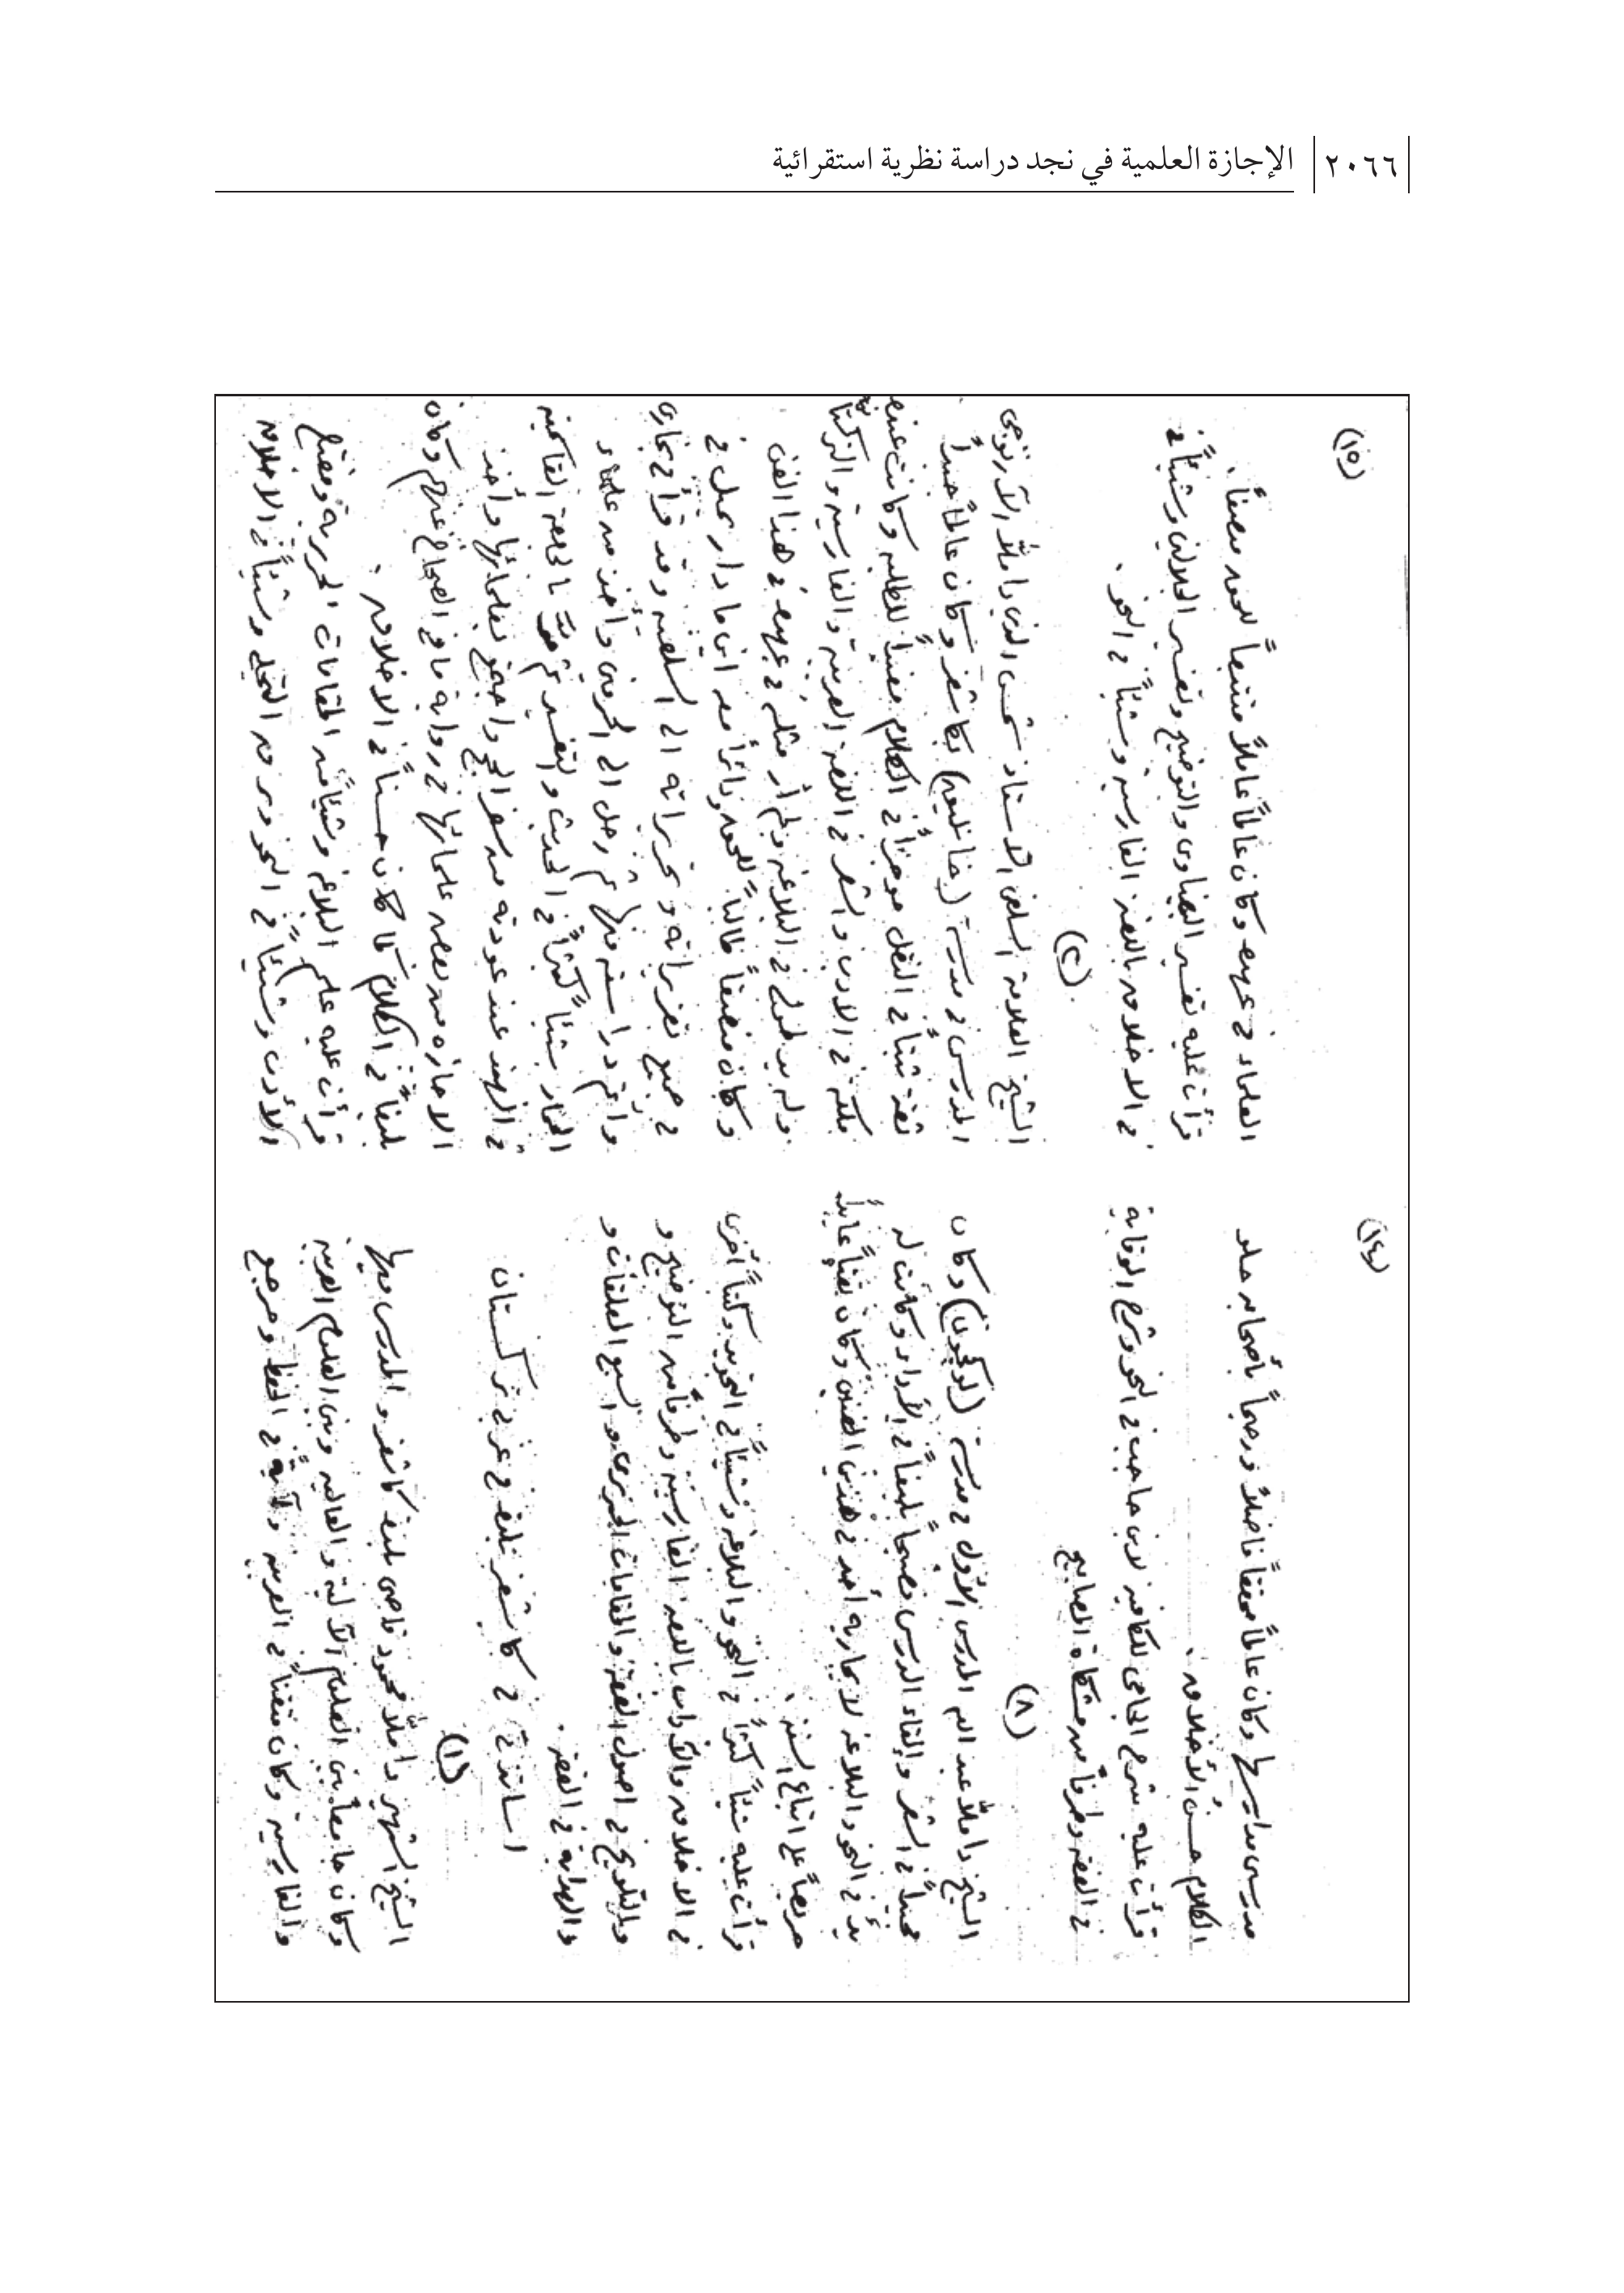 ٢٠٦٦
الإجازة العلمية في نجد دراسة نظرية استقرائية
(١٤)
مدرسى وكان عالماً محققاً فاضلاً ورحيماً بأصحابه حلو
الكلام حسن الأخلاق .
قرأت عليه شرح الجامى للكافية لابن حاجب فى النحو وشرح الوقاية
فى الفقه وطرفاً من مشكاة المصابيح
(٨)
الشيخ داملا عبد الله المدرس الأول فى مدرسة (لوكچون) وكان
مجيداً فى الشعر وإلقاء الدرس فصيحاً بليغاً فى الأداء وكانت له
يد فى النحو والبلاغة لا يجاريه أحد فى هذين الفنين وكان تقياً عابداً
حريصاً على اتباع السنة .
قرأت عليه شيئاً كثيراً فى النحو والبلاغة وشيئاً فى التجويد وكتباً أخرى
فى الاخلاق والآداب باللغة الفارسية وطرفاً من التوضيح و
والتلويح فى اصول الفقه والمقامات الحريرى و السبع المعلقات و
والهداية فى الفقه .
اساتذتى فى كاشغر بلدة فى غربى تركستان
(١)
الشيخ الشهير داملا محمود قاضى بلدة كاشغر و المدرس فيها
وكان جامعاً بين العلوم الآلية والعالية وبين العلوم العربية
والفارسية وكان متقناً فى العربية وآية فى الحفظ ومرجع
(١٥)
العلماء فى عهده وكان عالماً عاملاً متتبعاً للحق منصفاً .
قرأت عليه تفسير البيضاوى والتوضيح وتفسير الجلالين وشيئاً فى
فى الاخلاق باللغة الفارسية وشيئاً فى النحو .
(٢)
الشيخ العلامة السلفى الاستاذ شمس الدين داملا
المدرس فى مدرسة (خانليق) بكاشغر وكان عالماً جيداً
ثقة ثبتاً فى النقل موجزاً فى الكلام مفيداً للطلبه وكانت عنده
ملكة فى الادب والشعر فى اللغة العربية والفارسية والتركية
وله يد طولى فى البلاغة ولم أر مثله فى عهده فى هذا الفن
وكان منصفاً طالباً للحق دائراً معه اين ما دار يميل فى
فى جميع تقريراته وتحريراته الى السلفية وقد قرأ فى بخارى
واتم دراسته فيها ثم رحل الى الحرمين وأخذ من علماء
شيئاً كثيراً فى الحديث والتفسير ثم بالجامعة القاسمية
فى الهند عند عودته من سفر الحج واجتمع بعلمائها وأخذ
الاجازة من بعض علمائها فى رواية ما فى الصحاح عنهم وكان
بليغاً فى الكلام كما كان حسناً فى الاخلاق .
قرأت عليه علم البلاغة وشيئاً من المقامات الحريرية ومفتاح
الأدب وشيئاً فى النحو وشيئاً فى الاخلاق